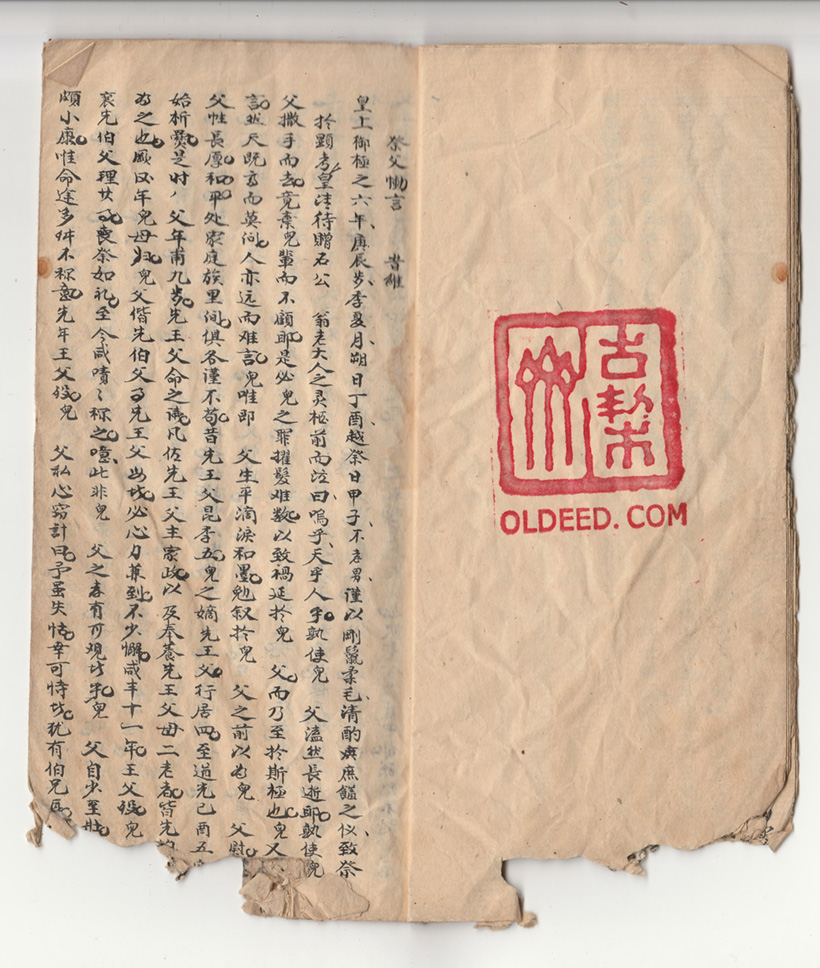 祭父慟言 昔維
皇上御極之六年庚辰歲季夏月朔日丁酉越祭日甲子不孝男謹以剛鬣柔毛清酌庶饈之仪致祭
於顯考皇清待贈石公 翁老大人之灵柩前而泣曰嗚乎天乎人乎孰使兒 父溘然長逝耶孰使兒
父撒手而去竟棄兒輩而不顧耶是必兒之罪擢髮难数以致禍延於兒 父而乃至於斯極也兒又
然天既高而莫问人亦远而难言兒唯即 父生平滴淚和墨勉叙於兒 父之前以为兒 父慰
父性長厚和平处家庭族里间俱各谨不苟昔先王父昆季五兒之嫡先王父行居四至道光己酉五
始析爨是时 父年甫九歲先王父命之讀凡佐先王父主家政以及奉養先王父母二老者皆先
为之也厥后年兒母归兒父偕先伯父事先王父母必心力兼到不少懈咸丰十一年王父殁兒
先伯父理喪祭如礼至今咸嘖々称之噫此非兒 父之孝有可观者乎兒 父自少至壯
頗小康唯命途多舛不称意先年王父殁兒 父私心窃計曰予虽失怙幸可恃者犹有伯兄
古契
OLDEED.COM